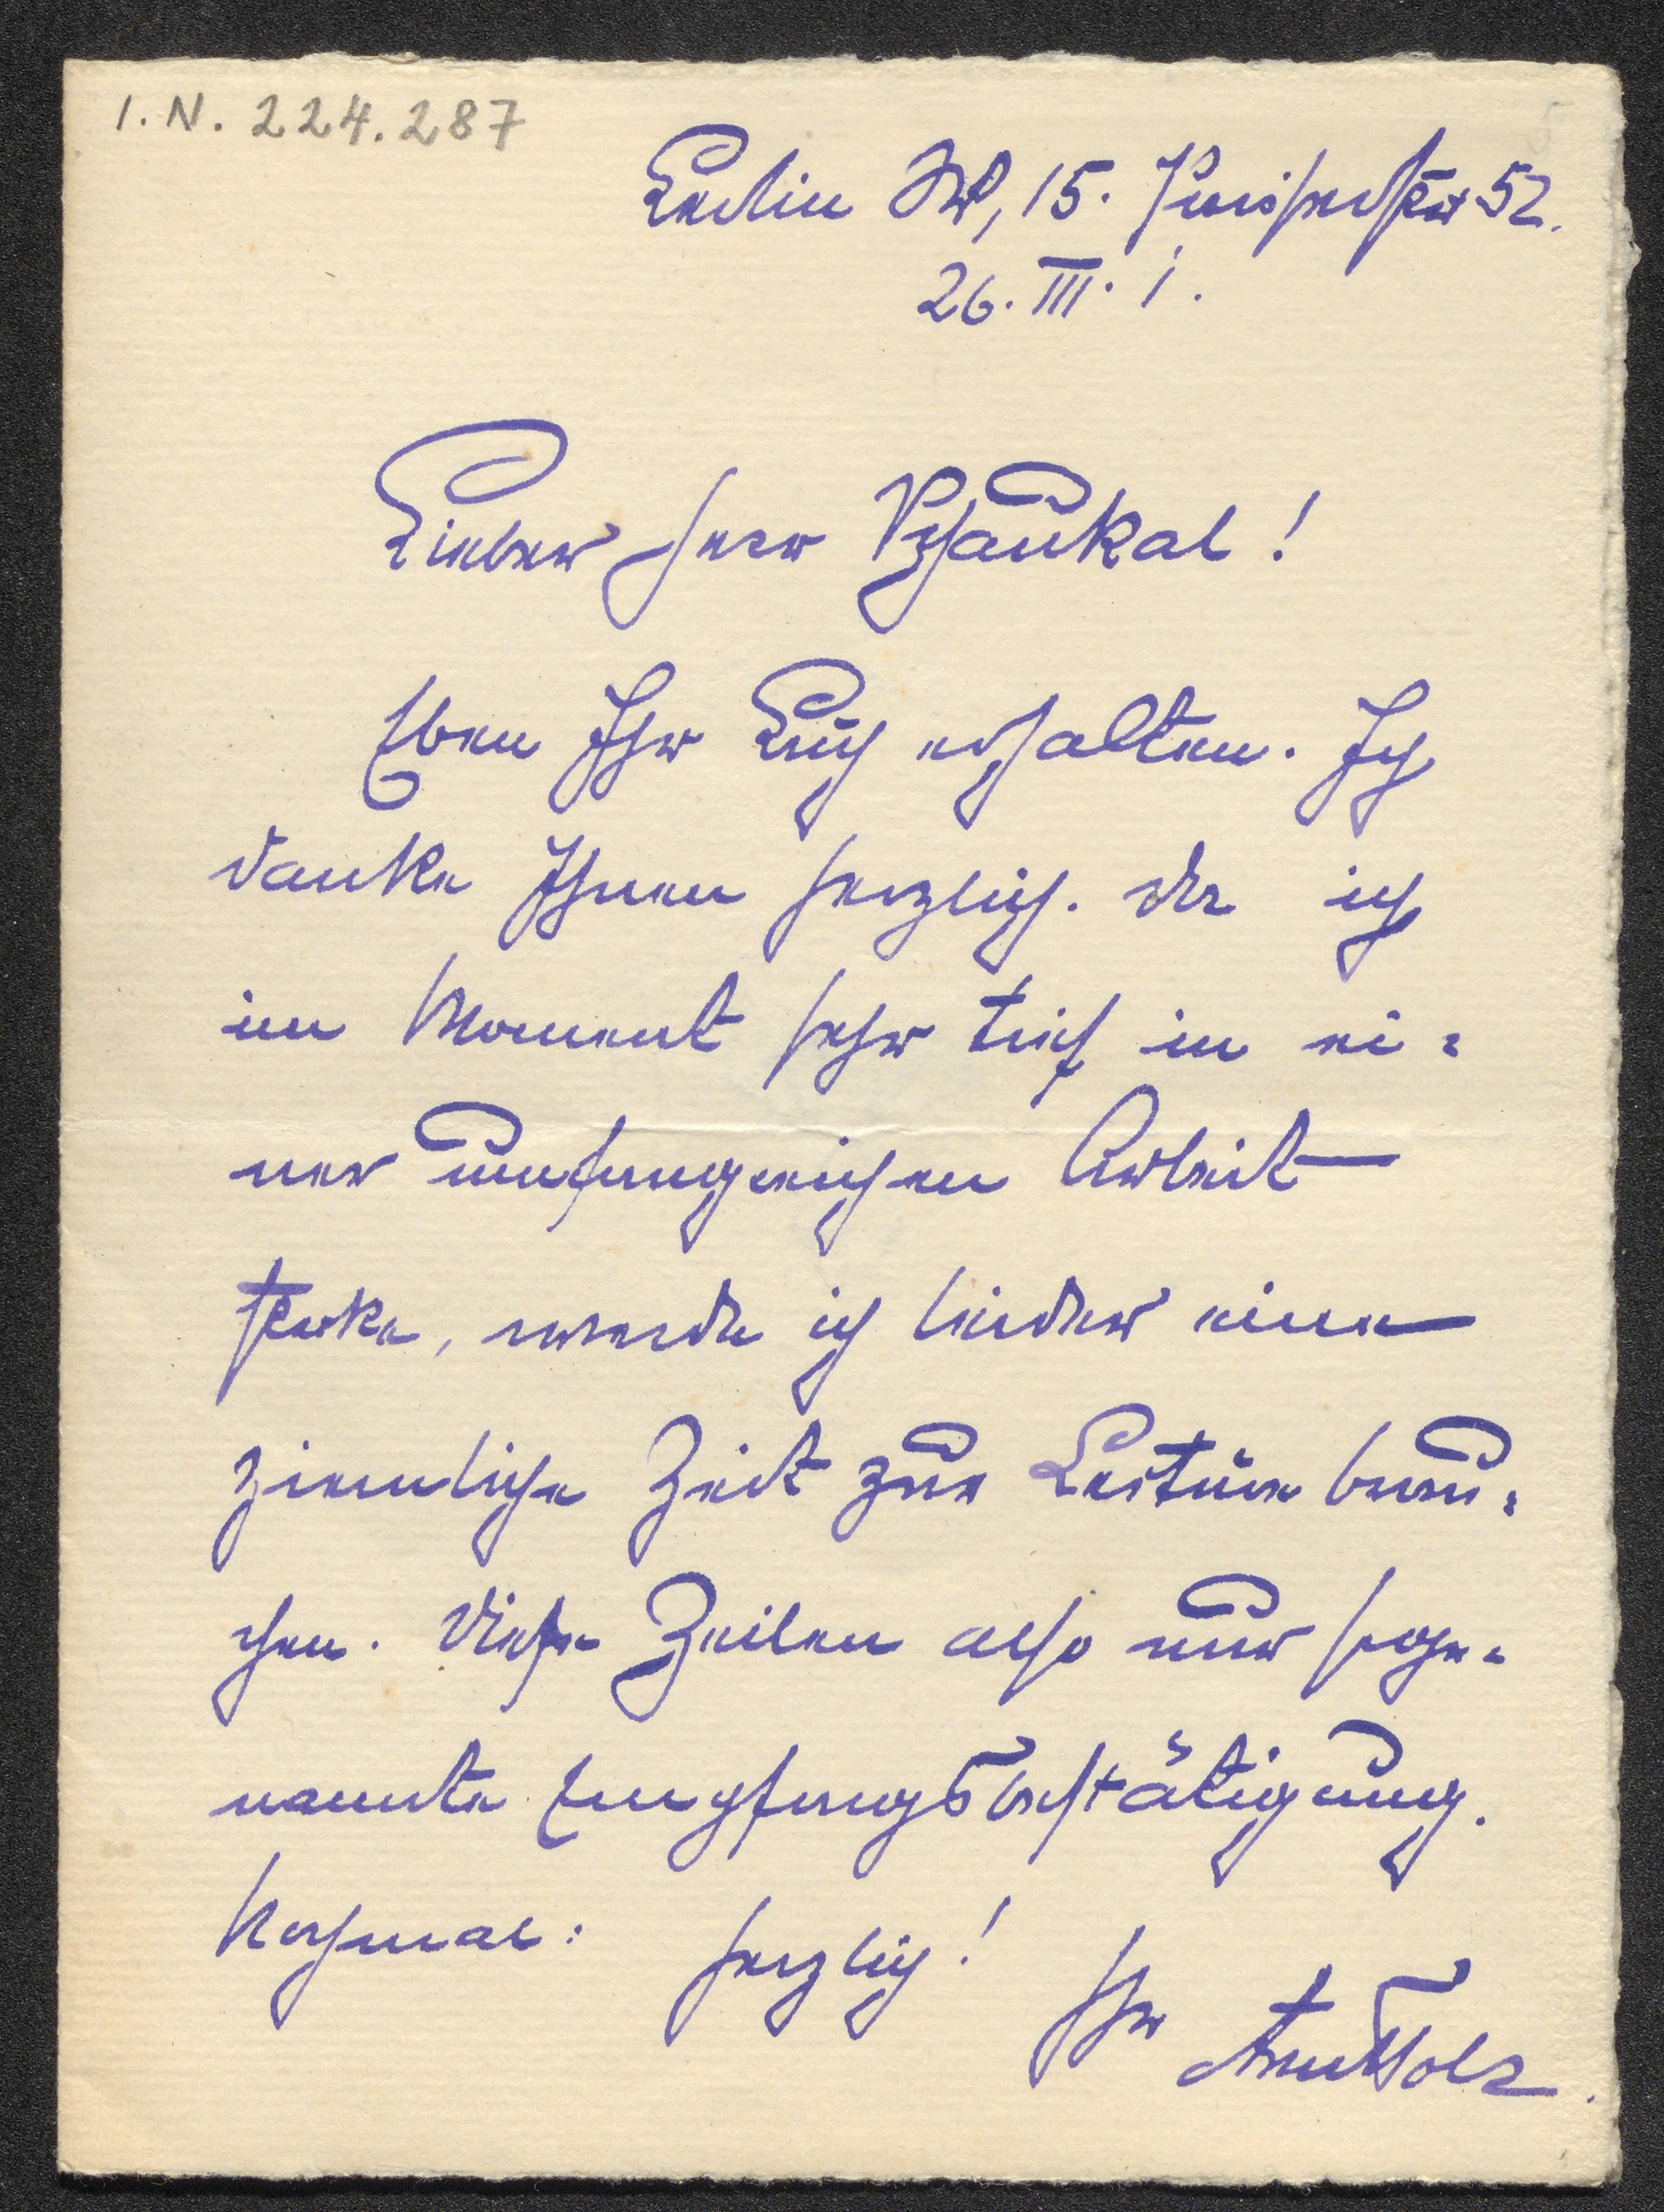 I.N. 224.287
Berlin W, 15. Pariserstr 52.
26. III. 1.
Lieber Herr Schaukal!
Eben Ihr Buch erhalten. Ich
danke Ihnen herzlich. Da ich
im Moment sehr tief in ei=
ner umfangreichen Arbeit
stecke, werde ich leider eine
ziemliche Zeit zur Lectüre brau=
chen. Diese Zeilen also nur soge=
nannte Empfangsbestätigung.
Nochmal: herzlich!
Ihr Arno Holz.